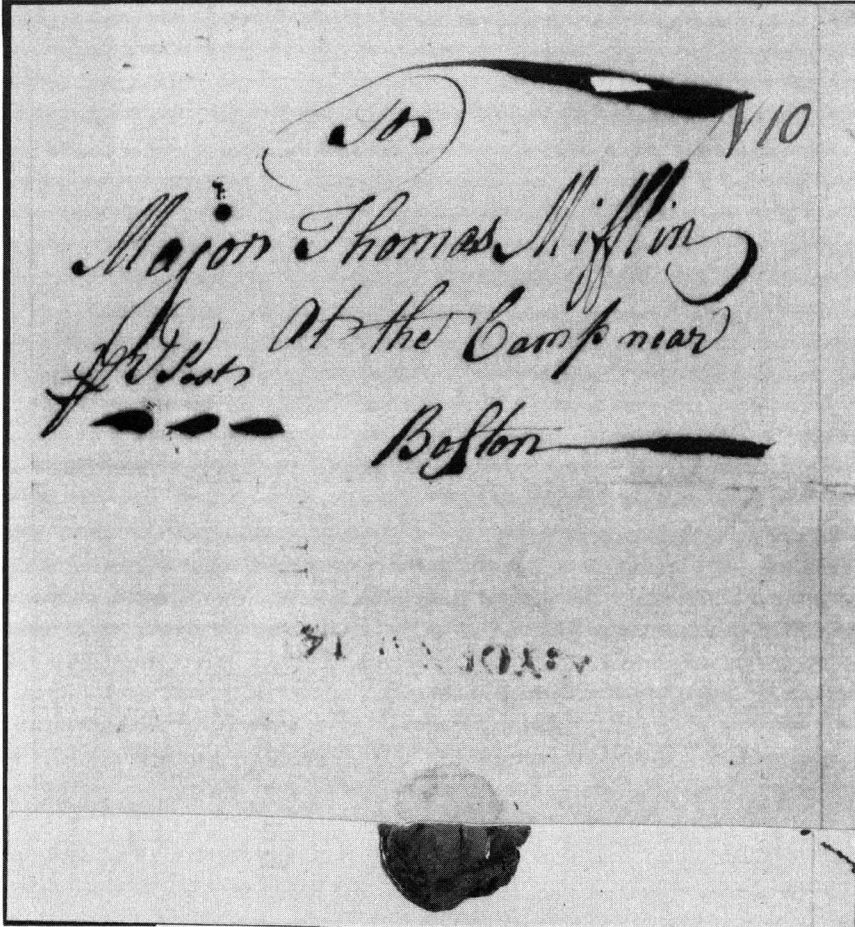 For
N 10
Major Thomas Mifflin
At the Camp near
Pr Post
Boston